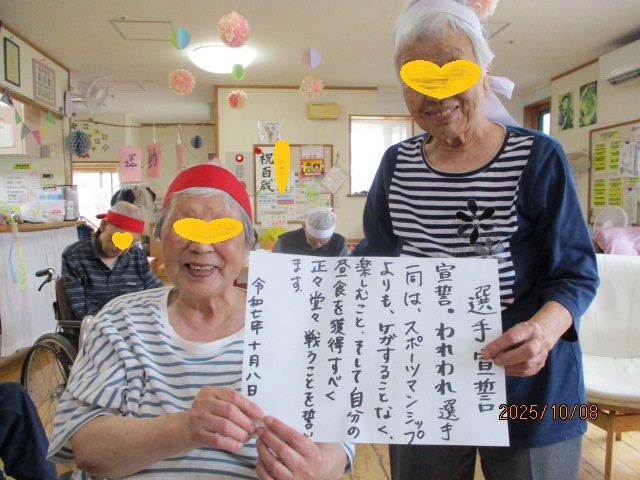 選手宣誓
宣誓。われわれ選手
一同は、スポーツマンシップ
よりも、ケガすることなく、
楽しむこと、そして自分の
昼食を獲得すべく
正々堂々 戦うことを誓い
ます。
令和七年十月八日
祝百歳
運
動
2025/10/08